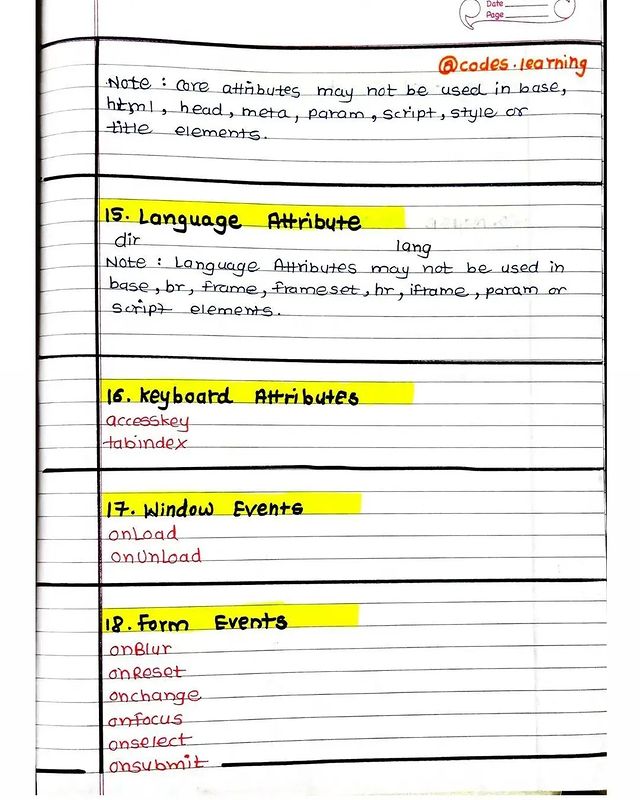 Date
Page
@codes.learning
Note : core attributes may not be used in base,
html, head, meta, param, script, style or
title elements.
15. Language Attribute
dir lang
Note : Language Attributes may not be used in
base, br, frame, frameset, hr, iframe, param or
script elements.
16. keyboard Attributes
accesskey
tabindex
17. Window Events
onLoad
onUnload
18. Form Events
onBlur
onReset
onchange
onfocus
onselect
onsubmit